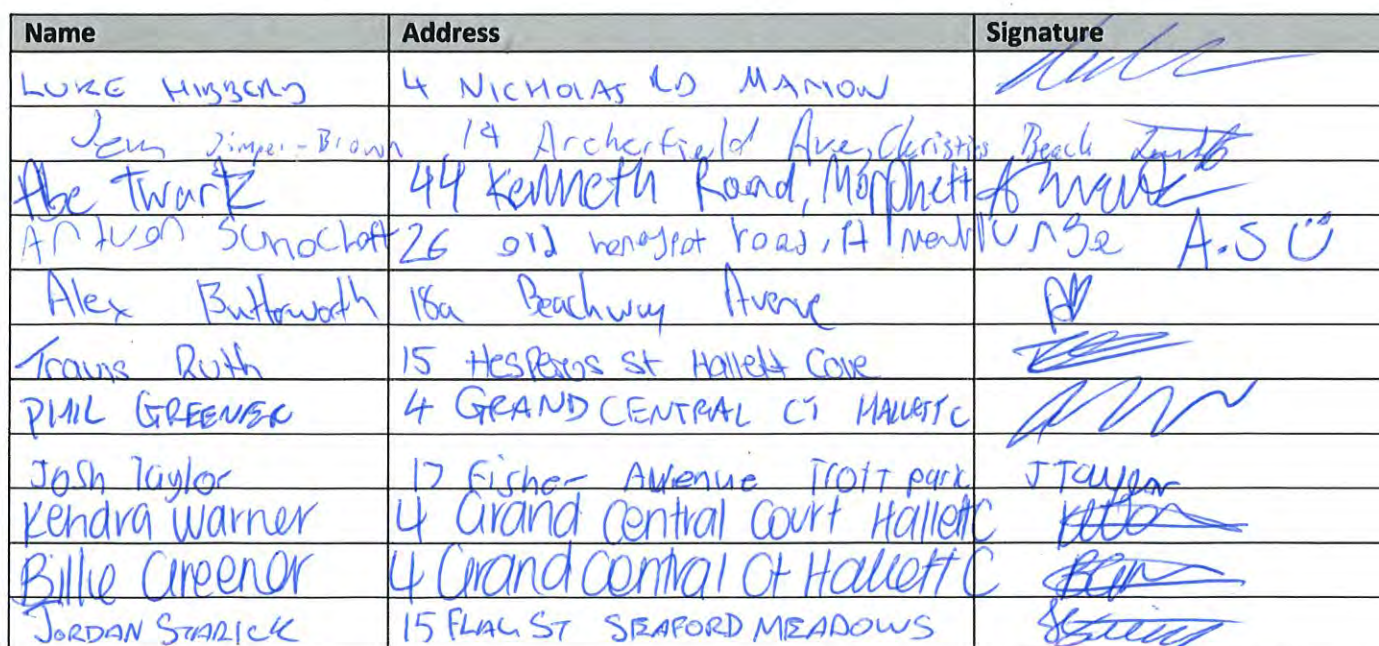 Name Address Signature
LUKE HIBBERD 4 NICHOLAS RD MARION
Jem Jimper-Brown 14 Archerfield Ave, Christies Beach
Abe Twark 44 Kenneth Road, Morphett A Twark
26 old road, A.S
Alex Butterworth 18a Beachway Avenue AB
Travis Ruth 15 Hesperos St Hallett Cove
PHIL GREENER 4 GRAND CENTRAL CT HALLETT C
Josh Taylor 17 Fisher Avenue Trott park J Taylor
Kendra Warner 4 Grand Central Court Hallett C
Billie Greener 4 Grand Central Ct Hallett C
JORDAN STARICK 15 FLAG ST SEAFORD MEADOWS